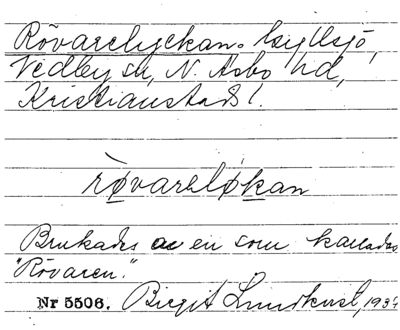 Rövarelyckan. Gyllsjö,
Vedby sn, N. Åsbo hd,
Kristianstads l.
røvarḙløkan
Brukades av en som kallades
"Rövaren."
Nr 5506. Birgit Lundkvist, 1934